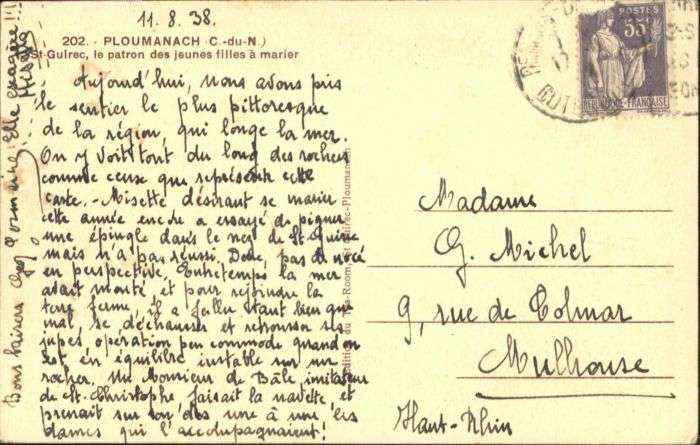 11.8.38.
202. - PLOUMANACH (C.-du-N.)
St-Guirec, le patron des jeunes filles à marier
Aujourd'hui, nous avons pris
le sentier le plus pittoresque
de la région, qui longe la mer.
On y voit tout du long des rochers
comme ceux que représente cette
carte. - Misette désirant se marier
cette année encore a essayé de piquer
une épingle dans le nez de St-Guirec
mais n'a pas réussi. Donc, pas de noce
en perspective. Entretemps la mer
avait monté et pour rejoindre la
terre ferme, il a fallu tant bien que
mal, se déchausser et retrousser ses
jupes, opération peu commode quand on
est en équilibre instable sur un
rocher. Un Monsieur de Bâle, imitateur
de St-Christophe, faisait la navette et
prenait sur son dos une à une les
dames qui l'accompagnaient!
Bons baisers
Germaine
Elle exagère!!!
Misette
POSTES
55c
REPUBLIQUE FRANÇAISE
Madame
G. Michel
9, rue de Colmar
Mulhouse
Haut-Rhin